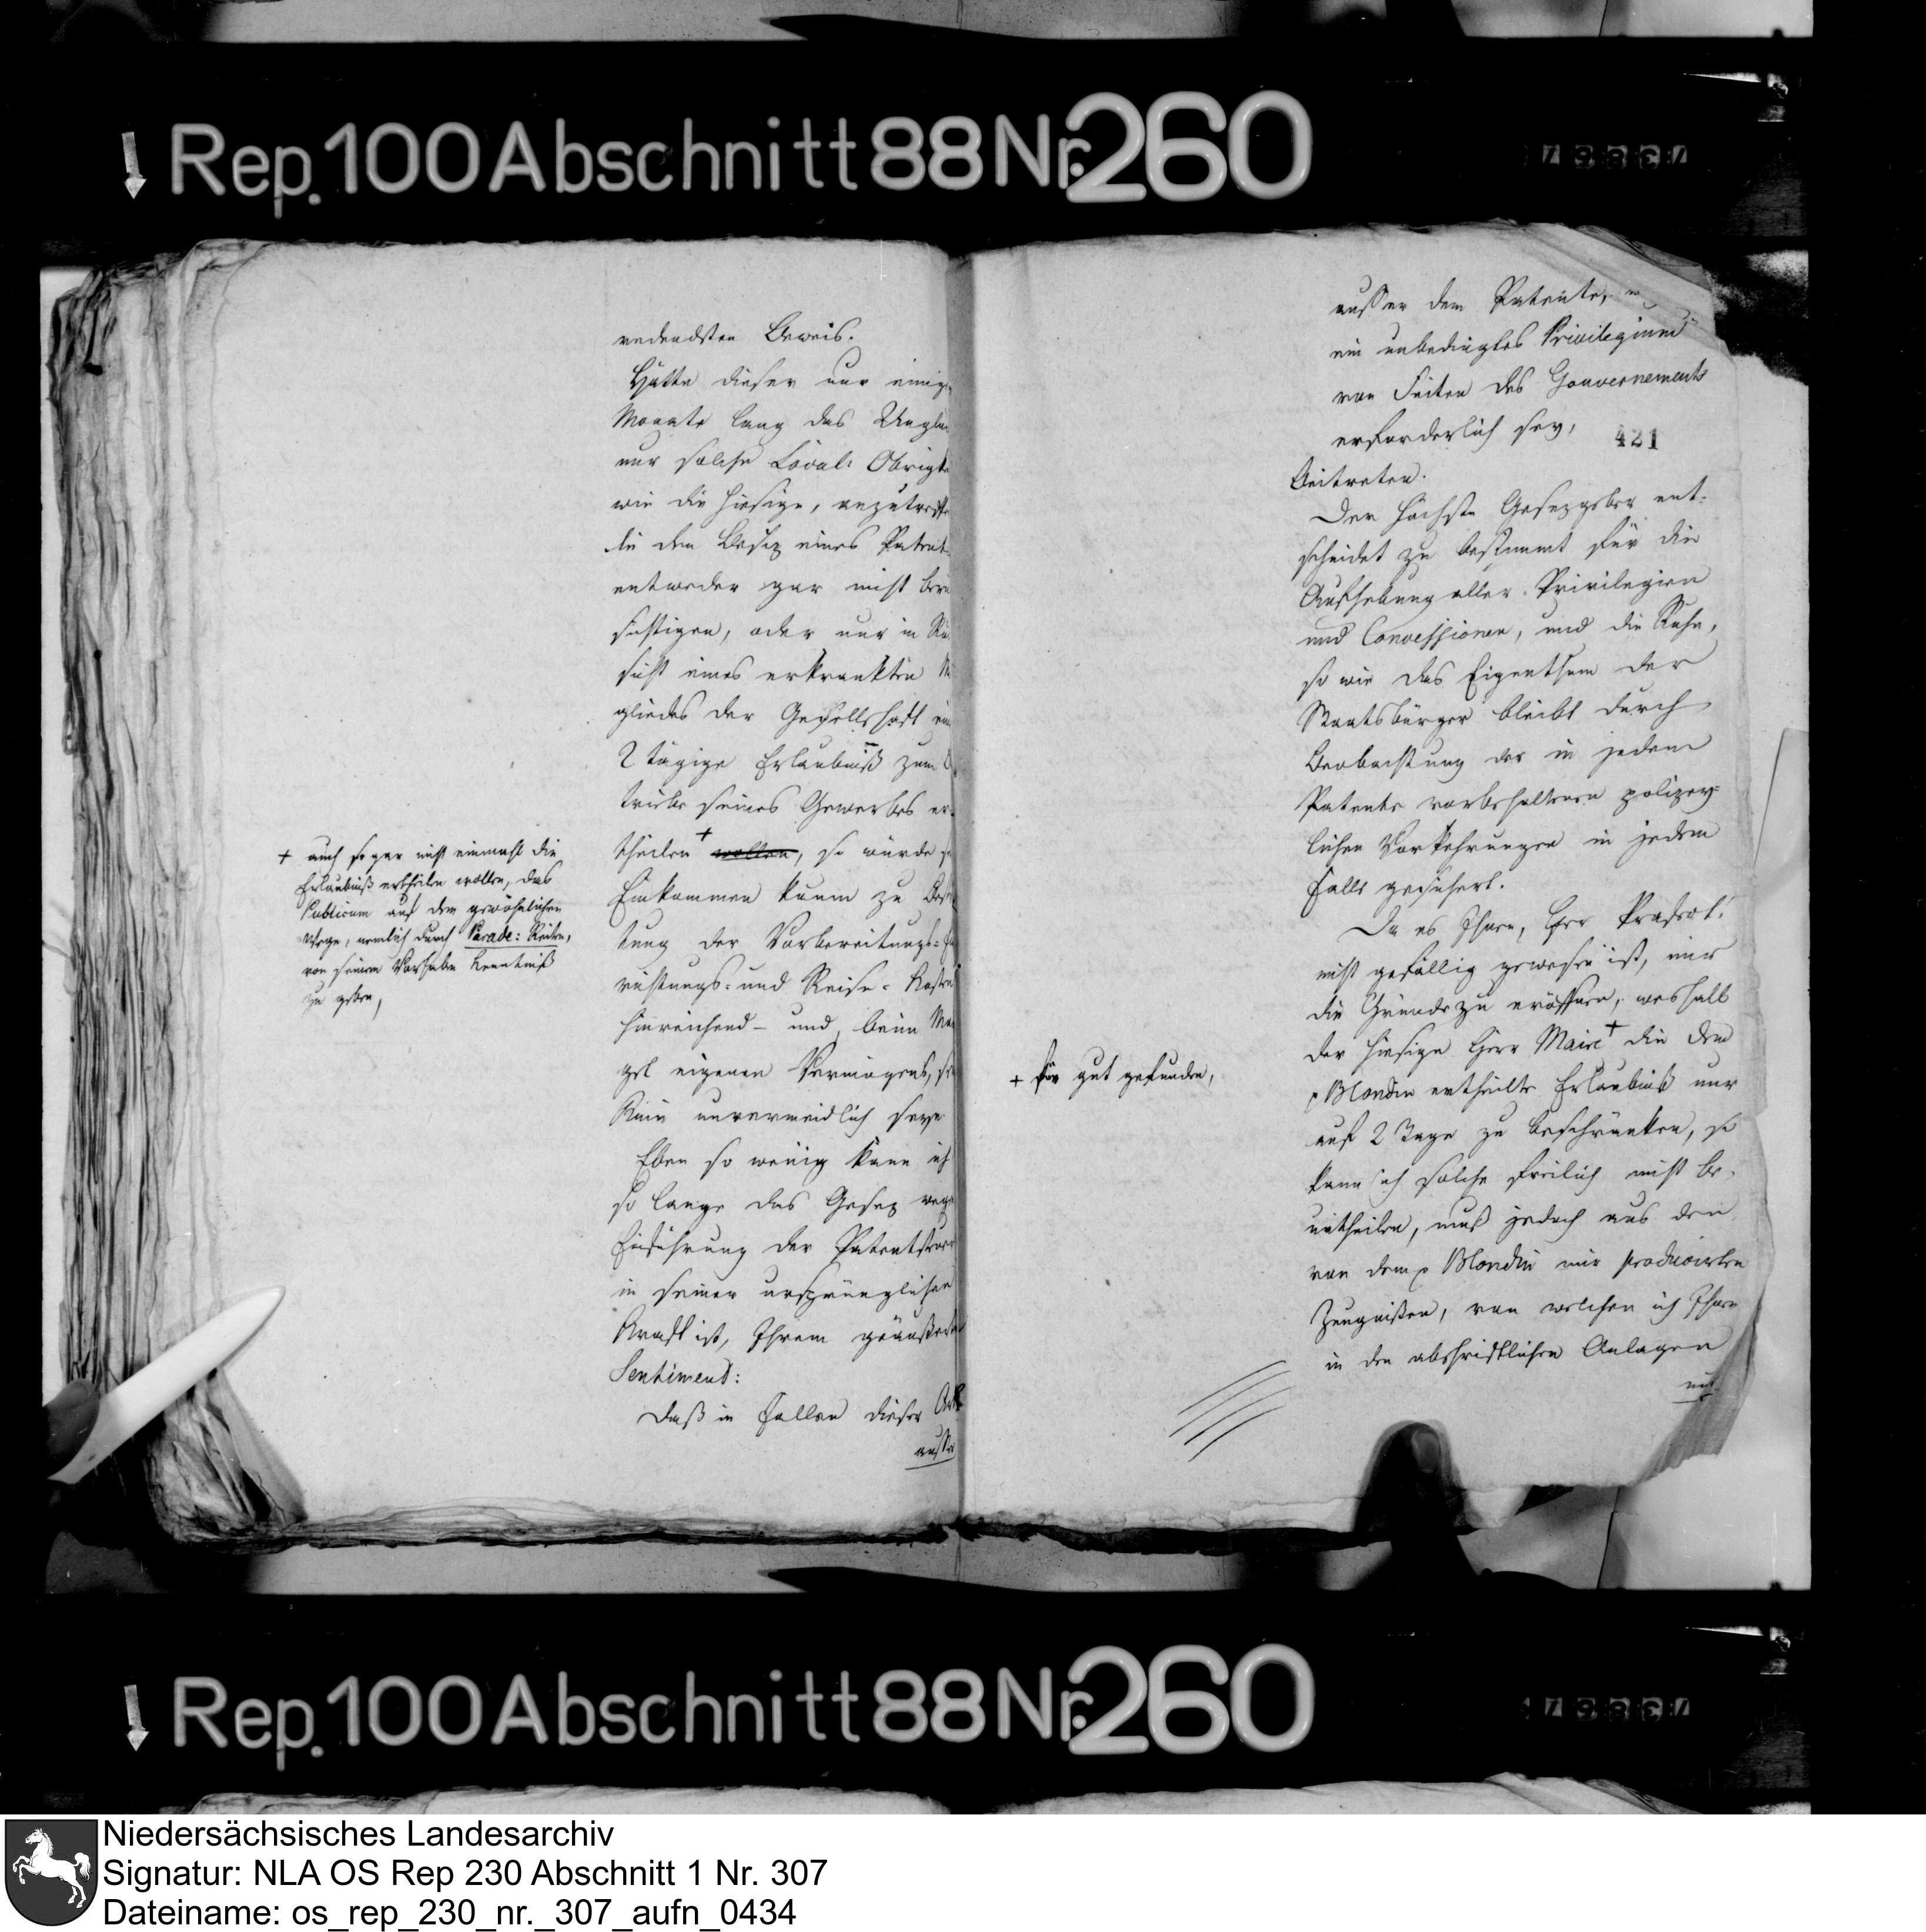 Rep. 100 Abschnitt 88 Nr. 260
redendsten Beweis.
Hätte dieser nur einige
Monate lang das Unglü
nur solche Local: Obrigk
wie die hiesige, anzutreffe
die den Besiz eines Patent
entweder gar nicht berü
sichtigen, oder nur in Rü
sicht eines erkrankten
gliedes der Gesellschaft ein
2 tägige Erlaubniß zum
triebe seines Gewerbes er
theilen + wollen, so würde
Einkommen kaum zu
tung der Vorbereitungs-
richtungs- und Reise- Kosten
hinreichend - und, beim Man
gel eigenen Vermögens, se
Ruin unvermeidlich seyn
Eben so wenig kann ich
so lange das Gesez weg
Einführung der Patentsteuer
in seiner ursprünglichen
Kraft ist, Ihrem geäußerten
Sentiment:
Daß in Fällen dieser Art
ausser
+ auch sogar nicht einmahl die
Erlaubniß ertheilen wollen, das
Publicum auf dem gewöhnlichen
Wege, nemlich durch Parade: Reiten,
von seinem Vorhaben Kenntniß
zu geben,
ausser dem Patente,
ein unbedingtes Privilegium
von Seiten des Gouvernements
erforderlich sey,
421
beitreten.
Der höchste Gesezgeber ent-
scheidet zu bestimmt für die
Aufhebung aller Privilegien
und Concessionen, und die Ruhe,
so wie das Eigenthum der
Staatsbürger bleibt durch
Beobachtung der in jedem
Patente vorbehaltenen polizey-
lichen Vorkehrungen in jedem
Falle gesichert.
Da es Ihnen, Herr Präfect!
nicht gefällig gewesen ist, mir
die Gründe zu eröffnen, weshalb
der hiesige Herr Maire + die dem
p Blondin ertheilte Erlaubniß nur
auf 2 Tage zu beschränken, so
kann ich solche freilich nicht be-
urtheilen, muß jedoch aus den
von dem p Blondin mir producirten
Zeugnißen, von welchen ich Ihnen
in den abschriftlichen Anlagen
+ für gut gefunden,
Rep. 100 Abschnitt 88 Nr. 260
Niedersächsisches Landesarchiv
Signatur: NLA OS Rep 230 Abschnitt 1 Nr. 307
Dateiname: os_rep_230_nr._307_aufn_0434